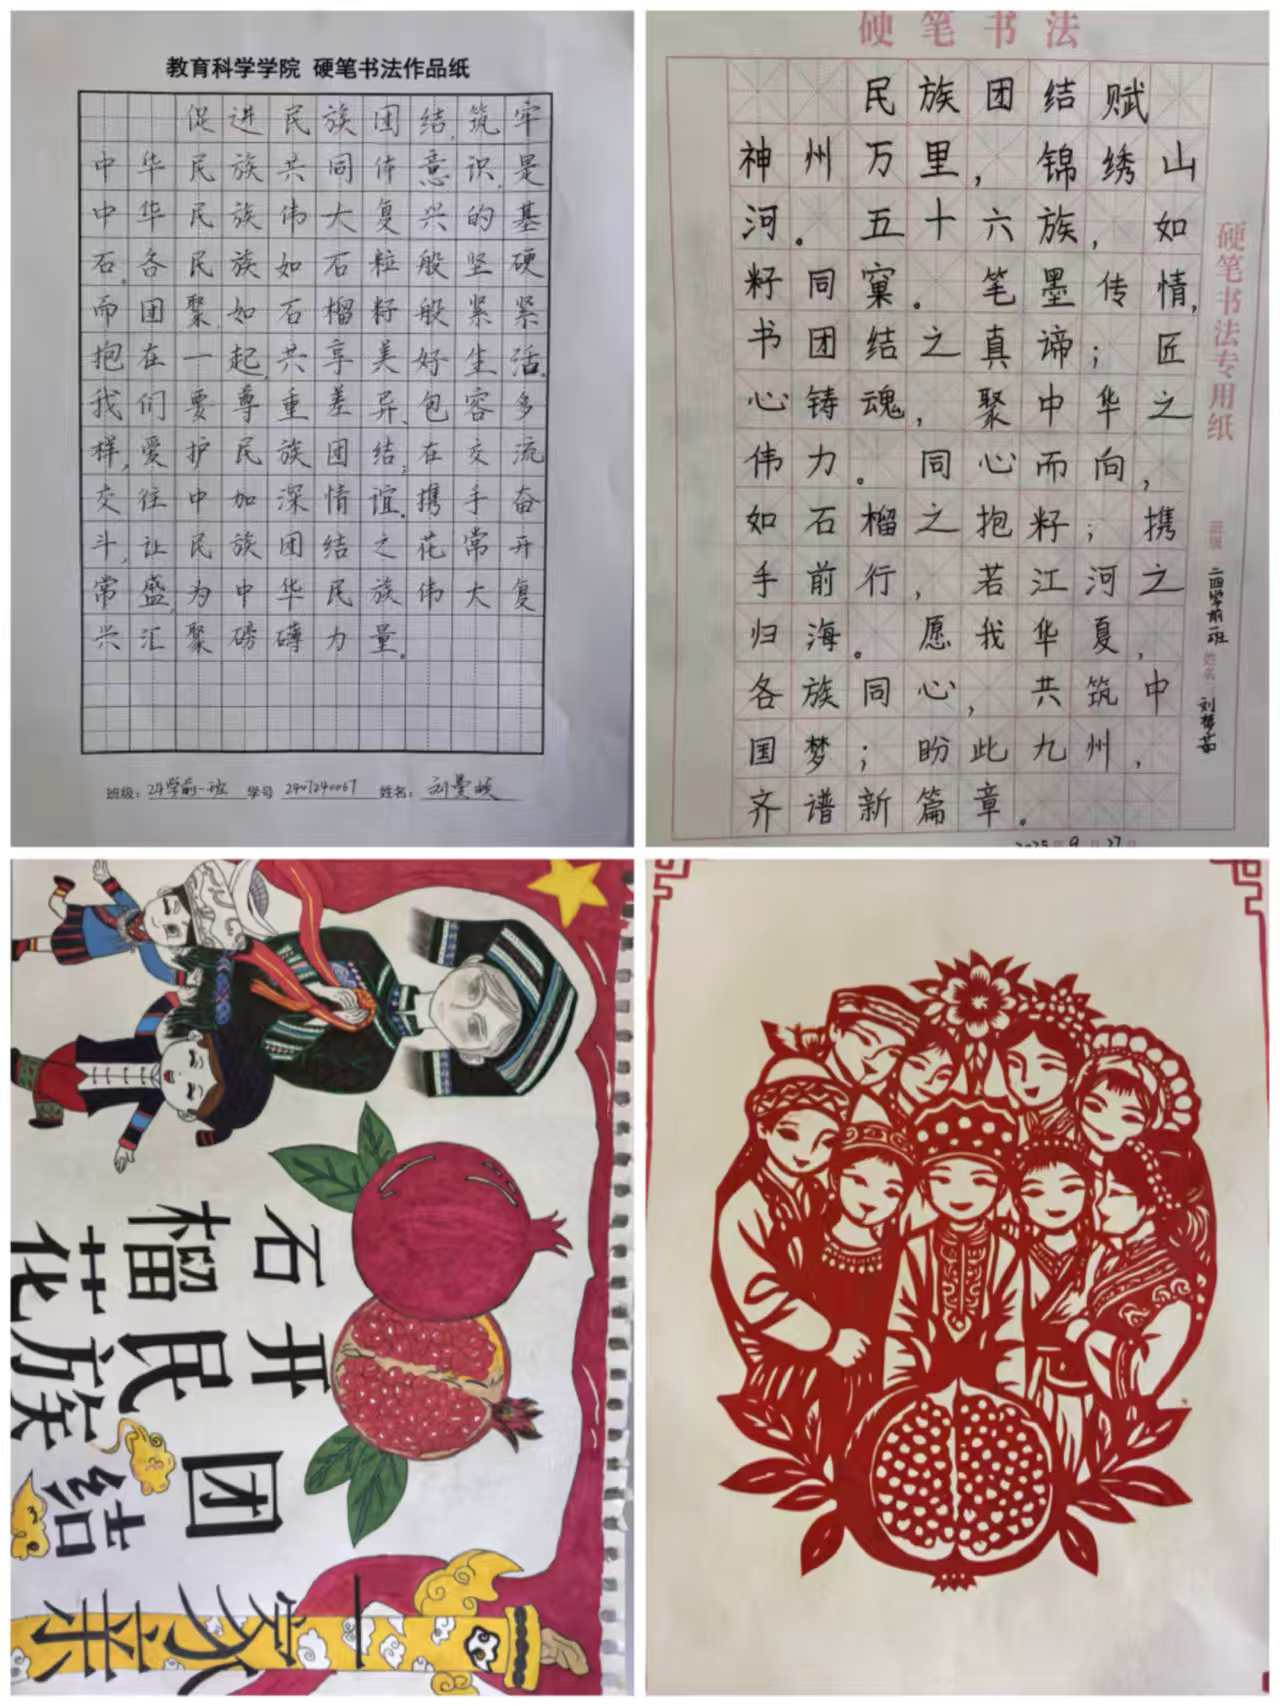 教育科学学院 硬笔书法作品纸
促进民族团结,筑牢
中华民族共同体意识,是
中华民族伟大复兴的基
石。各民族如石粒般坚硬
而团聚,如石榴籽般紧紧
抱在一起,共享美好生活。
我们要尊重差异、包容多
样,爱护民族团结,在交流
交往中加深情谊。携手奋
斗,让民族团结之花常开
常盛,为中华民族伟大复
兴汇聚磅礴力量。
班级:24学前一班 学号 2407240067 姓名:刘曼
硬笔书法
民族团结赋
神州万里,锦绣山
河。五十六族,如
籽同窠。笔墨传情,
书团结之真谛;匠
心铸魂,聚中华之
伟力。同心而向,
如石榴之抱籽;携
手前行,若江河之
归海。愿我华夏,
各族同心,共筑中
国梦;盼此九州,
齐谱新篇章。
硬笔书法专用纸
班级 二四学前一班 姓名 刘梦茹
2025年9月27日
石榴花
开民族
团结
一家亲